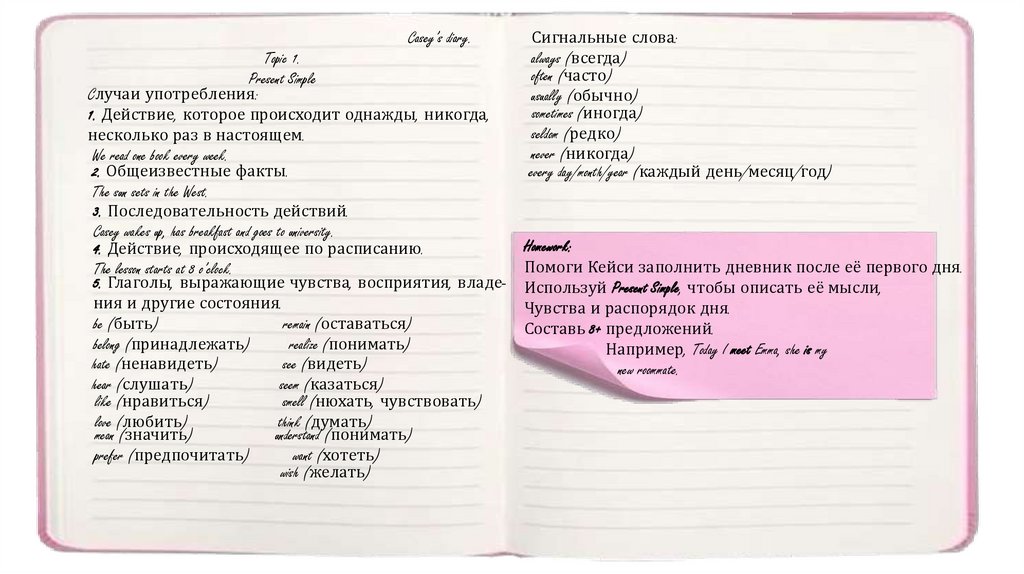 Casey's diary.
Topic 1.
Present Simple
Случаи употребления:
1. Действие, которое происходит однажды, никогда,
несколько раз в настоящем.
We read one book every week.
2. Общеизвестные факты.
The sun sets in the West.
3. Последовательность действий.
Casey wakes up, has breakfast and goes to university.
4. Действие, происходящее по расписанию.
The lesson starts at 8 o'clock.
5. Глаголы, выражающие чувства, восприятия, владе-
ния и другие состояния.
be (быть) remain (оставаться)
belong (принадлежать) realize (понимать)
hate (ненавидеть) see (видеть)
hear (слушать) seem (казаться)
like (нравиться) smell (нюхать, чувствовать)
love (любить) think (думать)
mean (значить) understand (понимать)
prefer (предпочитать) want (хотеть)
wish (желать)
Сигнальные слова:
always (всегда)
often (часто)
usually (обычно)
sometimes (иногда)
seldom (редко)
never (никогда)
every day/month/year (каждый день/месяц/год)
Homework:
Помоги Кейси заполнить дневник после её первого дня.
Используй Present Simple, чтобы описать её мысли,
Чувства и распорядок дня.
Составь 8+ предложений.
Например, Today I meet Emma, she is my
new roommate.